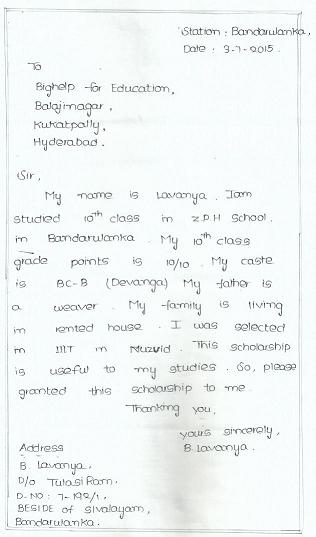 Station : Bandarulanka,
Date : 3-7-2015.
To
Bighelp for Education,
Balajinagar,
Kukatpally,
Hyderabad.
Sir,
My name is Lavanya. Iam
studied 10th class in Z.P.H School.
in Bandarulanka. My 10th class
grade points is 10/10. My caste
is BC-B (Devanga) My father is
a weaver. My family is living
in rented house. I was selected
in IIIT in Nuzvid. This scholarship
is useful to my studies. So, please
granted this scholarship to me.
Thanking you,
yours sincerely,
Address B. Lavanya.
B. Lavanya,
D/o Tulasi Ram,
D.NO: 7-192/1,
BESIDE of Sivalayam,
Bandarulanka.